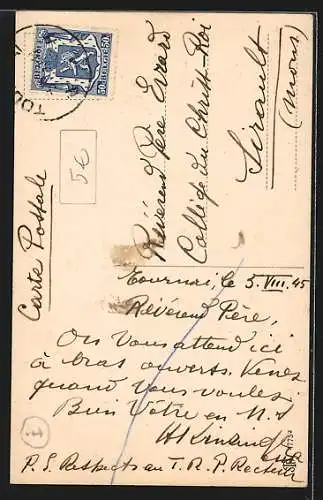 BELGIQUE 50
50 BELGIË 50
TOU
Carte Postale
5€
Révérend Père Errard
Collège du Christ-Roi
Sirault
(Mons)
Tournai, le 5. VIII. 45
Révérend Père,
On vous attend ici
à bras ouverts. Venez
quand vous voulez
Bien Vôtre en N.S
P.S. Respects au T.R.P. Recteur